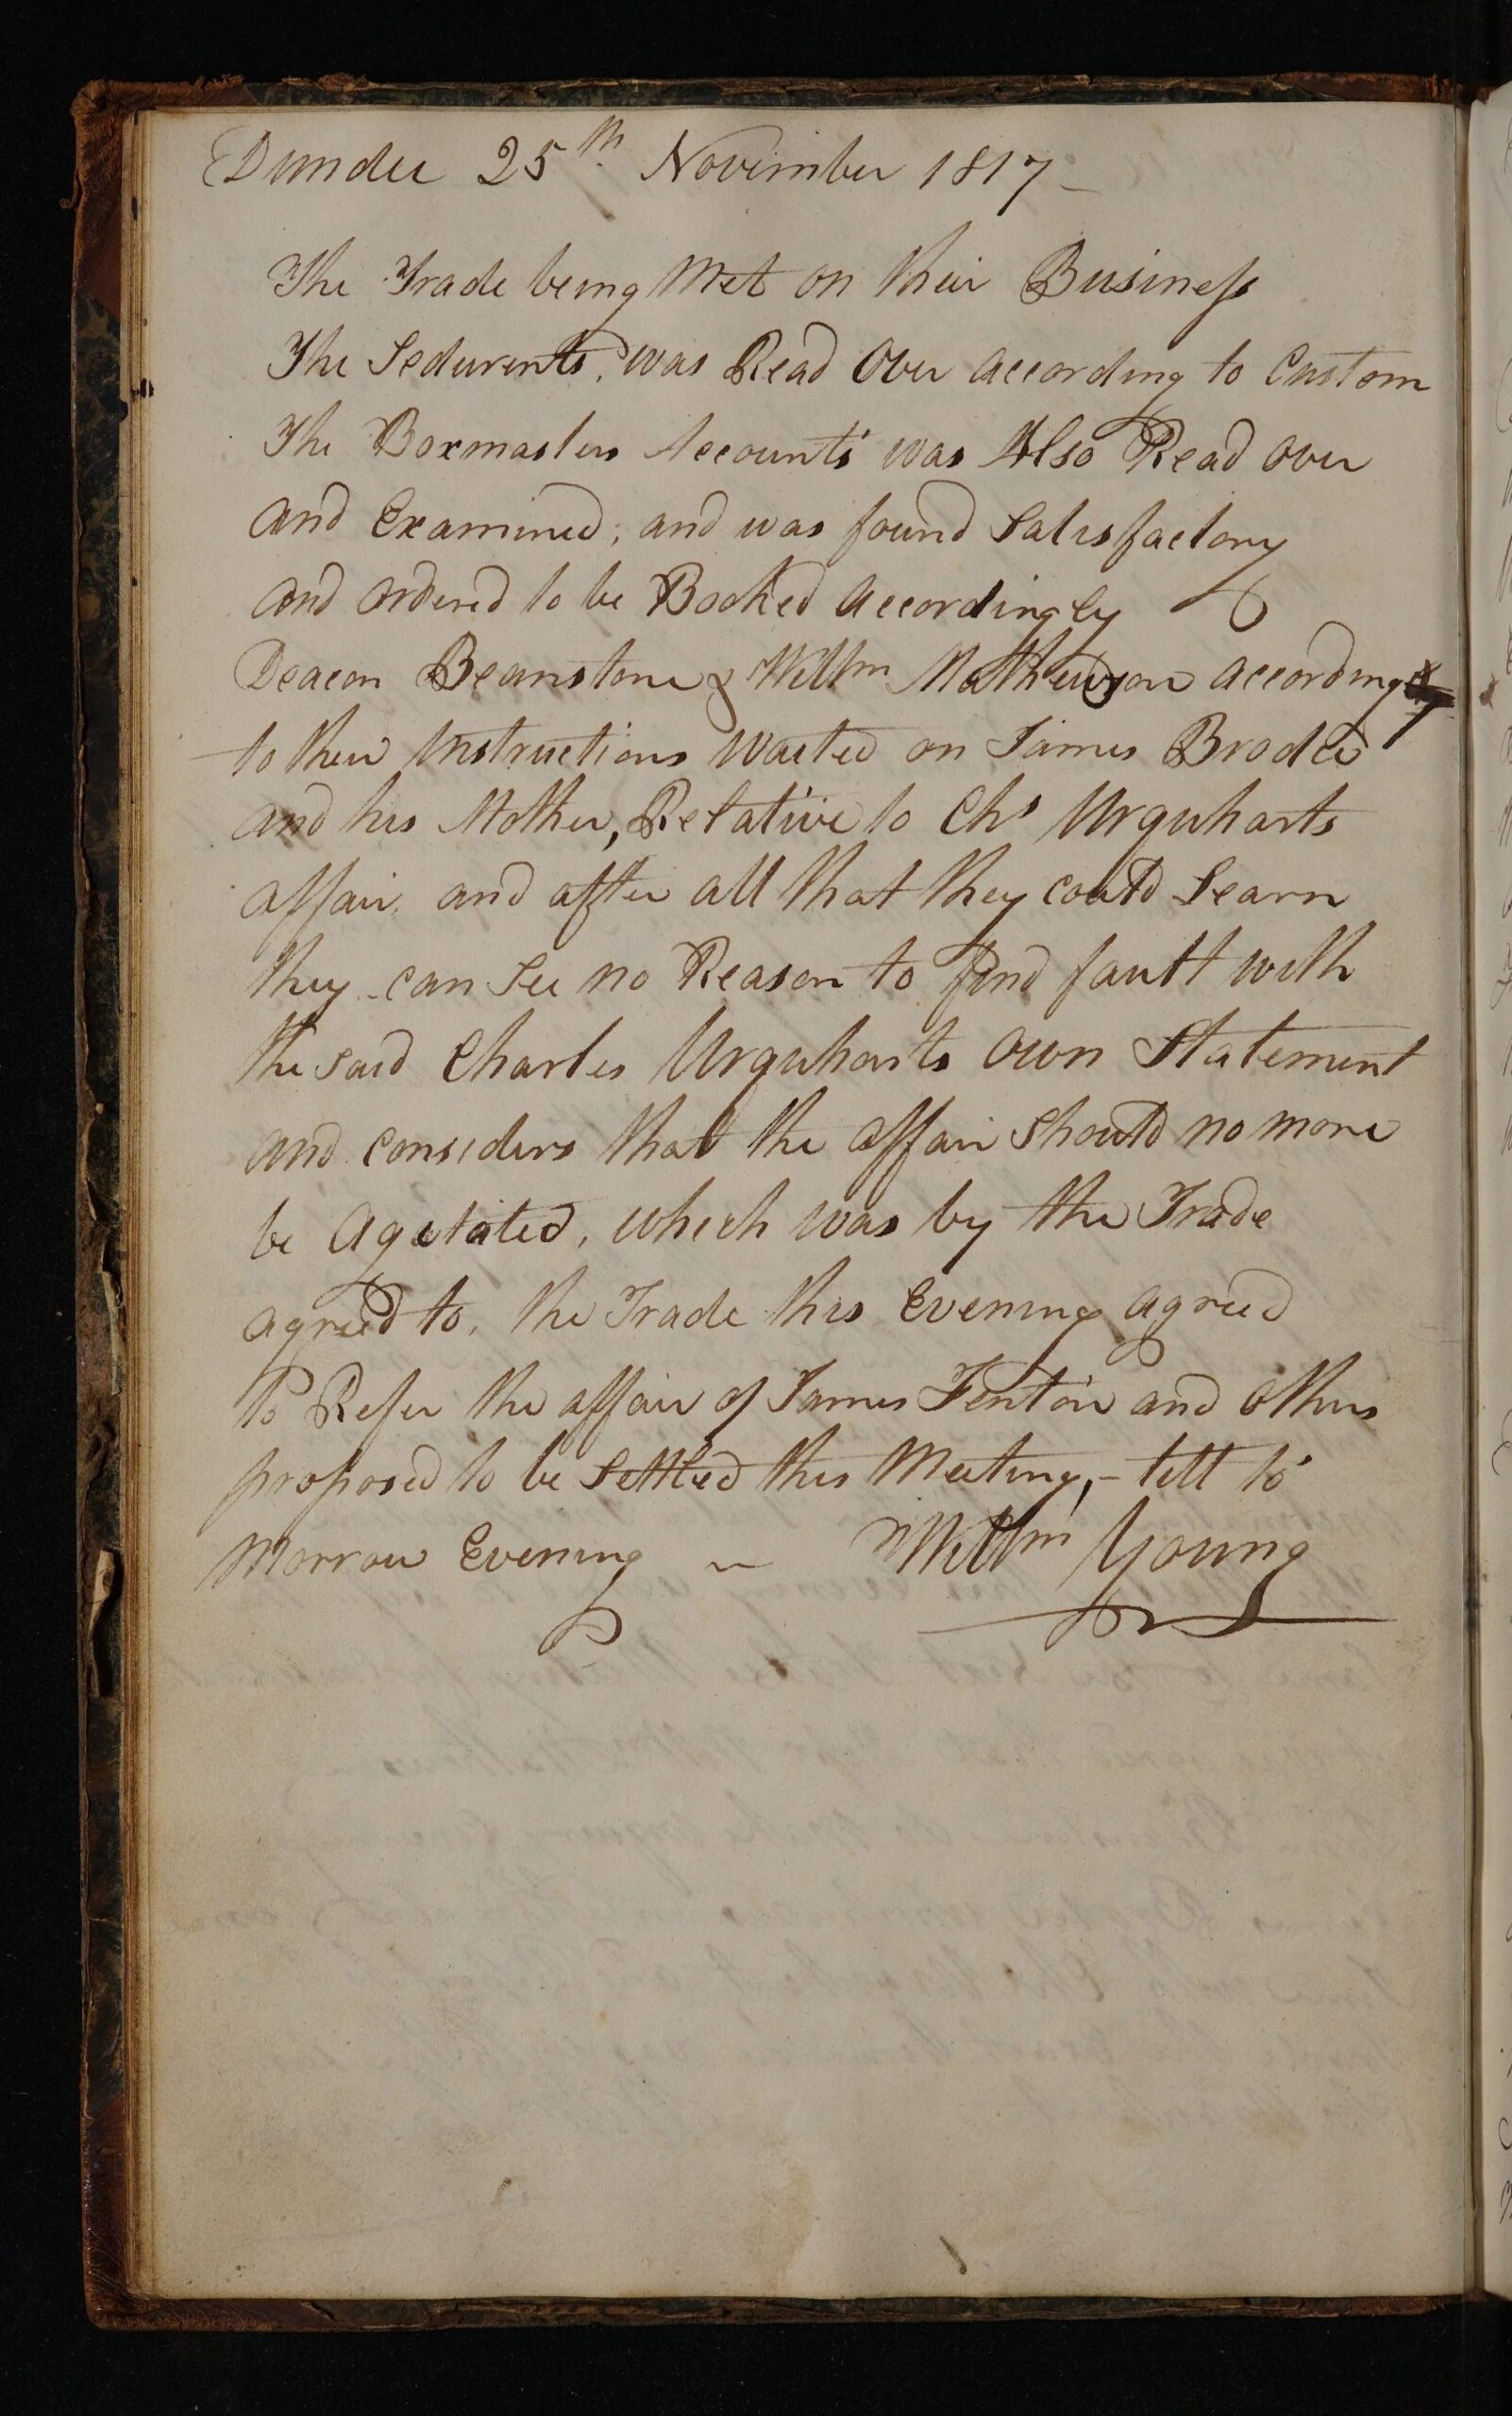 Dundee 25th November 1817
The Trade being Met on their Business
The Sedurents, was Read Over according to Custom
The Boxmasters Accounts was Also Read over
and Examined; and was found Satisfactory
and ordered to be Booked accordingly
Deacon Beanstone & Willm Mathewson according
to their Instructions Waited on James Brodie
and his Mother, Relative to Chs Urquharts
affair, and after all that they could Learn
they can See no Reason to find fault with
the said Charles Urquharts own Statement
and considers that the affair should no more
be Agetated, which was by the Trade
agreed to, the Trade this Evening agreed
to Refer the affair of James Fenton and others
proposed to be Settled this Meeting, - till to
Morrow Evening ~ Willm Young